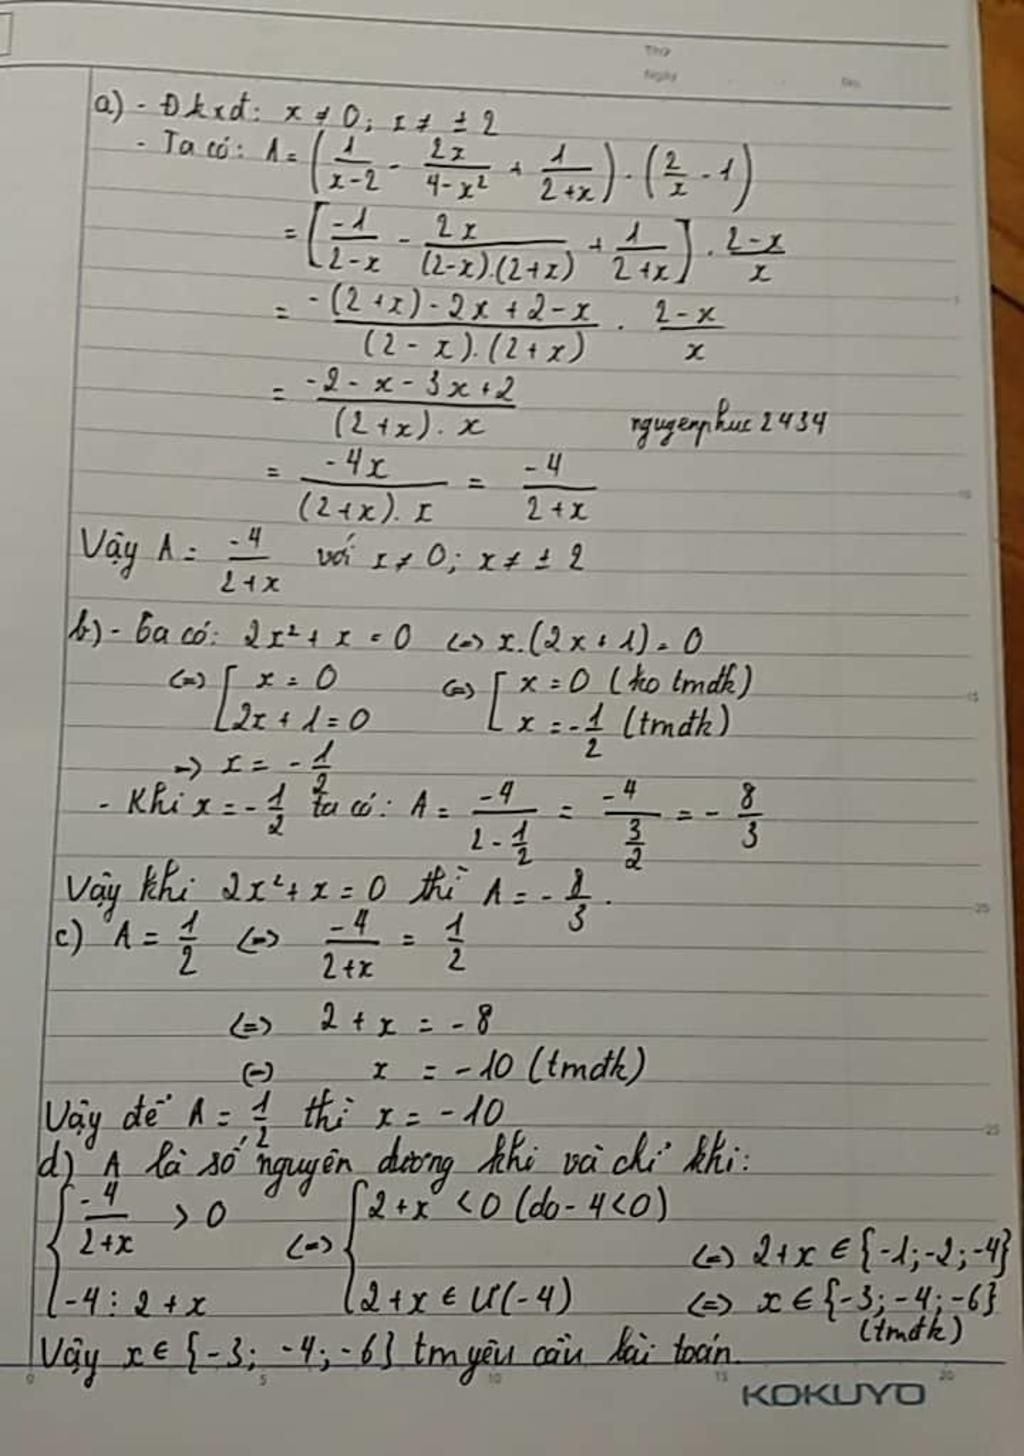 Thứ
Ngày No.
a) - Đkxđ: x ≠ 0; x ≠ ± 2
- Ta có: A = (1/(x-2) - 2x/(4-x²) + 1/(2+x)) . (2/x - 1)
= [-1/(2-x) - 2x/((2-x).(2+x)) + 1/(2+x)] . (2-x)/x
= (-(2+x) - 2x + 2 - x)/((2-x).(2+x)) . (2-x)/x
= (-2 - x - 3x + 2)/((2+x).x)
nguyenphuc2434
= -4x/((2+x).x) = -4/(2+x)
Vậy A = -4/(2+x) với x ≠ 0; x ≠ ± 2
b) - Ta có: 2x² + x = 0 <=> x.(2x+1) = 0
<=> [ x = 0 <=> [ x = 0 (ko tmđk)
2x + 1 = 0 x = -1/2 (tmđk)
=> x = -1/2
- Khi x = -1/2 ta có: A = -4/(2 - 1/2) = -4/(3/2) = -8/3
Vậy khi 2x² + x = 0 thì A = -8/3.
c) A = 1/2 <=> -4/(2+x) = 1/2
<=> 2 + x = -8
<=> x = -10 (tmđk)
Vậy để A = 1/2 thì x = -10
d) A là số nguyên dương khi và chỉ khi:
{ -4/(2+x) > 0 <=> { 2+x < 0 (do -4<0) <=> 2+x ∈ {-1;-2;-4}
-4 ⋮ 2+x 2+x ∈ Ư(-4) <=> x ∈ {-3;-4;-6}
(tmđk)
Vậy x ∈ {-3; -4; -6} tm yêu cầu bài toán.
0 5 10 15 20
KOKUYO